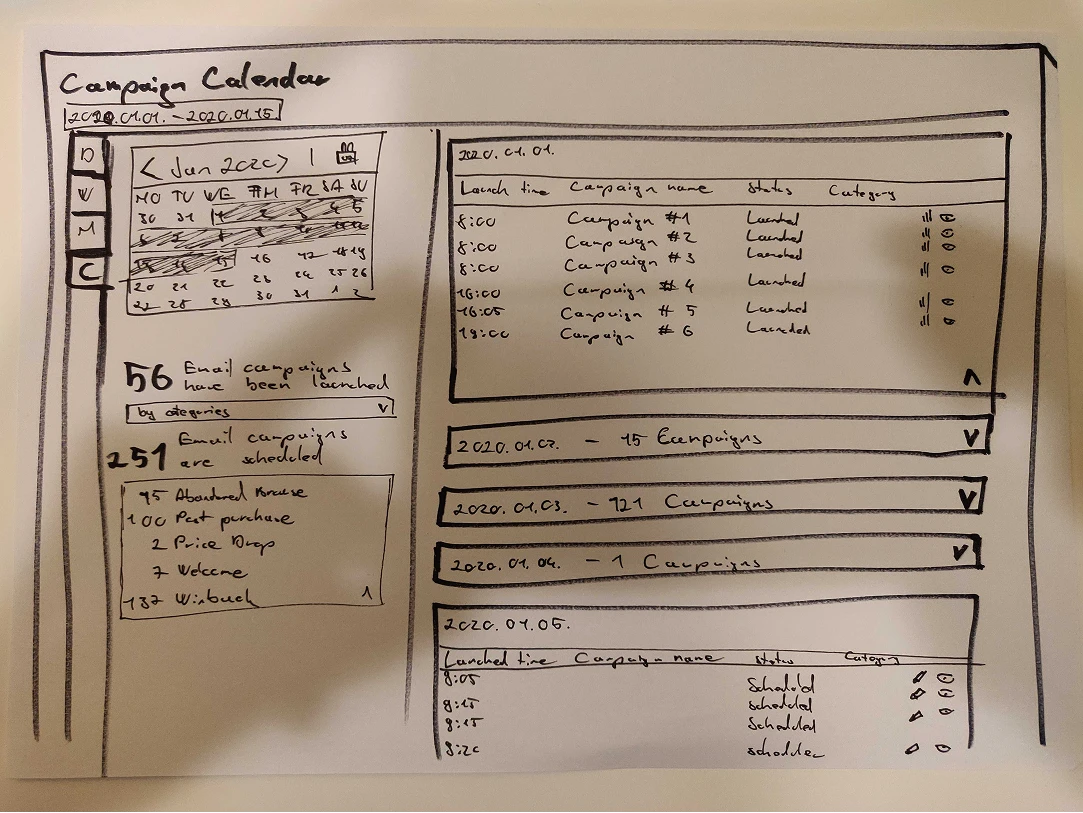 Campaign Calendar
2020.01.01. - 2020.01.15.
D
W
M
C
< Jan 2020 > |
MO TU WE TH FR SA SU
30 31 1 2 3 4 5
16 17 18 19
20 21 22 23 24 25 26
27 28 29 30 31 1 2
56 Email campaigns
have been launched
by categories v
251 Email campaigns
are scheduled
Abandoned Browse
100 Post purchase
2 Price Drop
7 Welcome
137 Winback ^
2020.01.01.
Launch time Campaign name Status Category
8:00 Campaign #1 Launched
8:00 Campaign #2 Launched
8:00 Campaign #3 Launched
16:00 Campaign #4 Launched
16:05 Campaign #5 Launched
19:00 Campaign #6 Launched
^
2020.01.02. - 15 Campaigns v
2020.01.03. - 121 Campaigns v
2020.01.04. - 1 Campaigns v
2020.01.05.
Launched time Campaign name Status Category
8:05 Scheduled
8:15 Scheduled
8:15 Scheduled
8:20 Scheduled